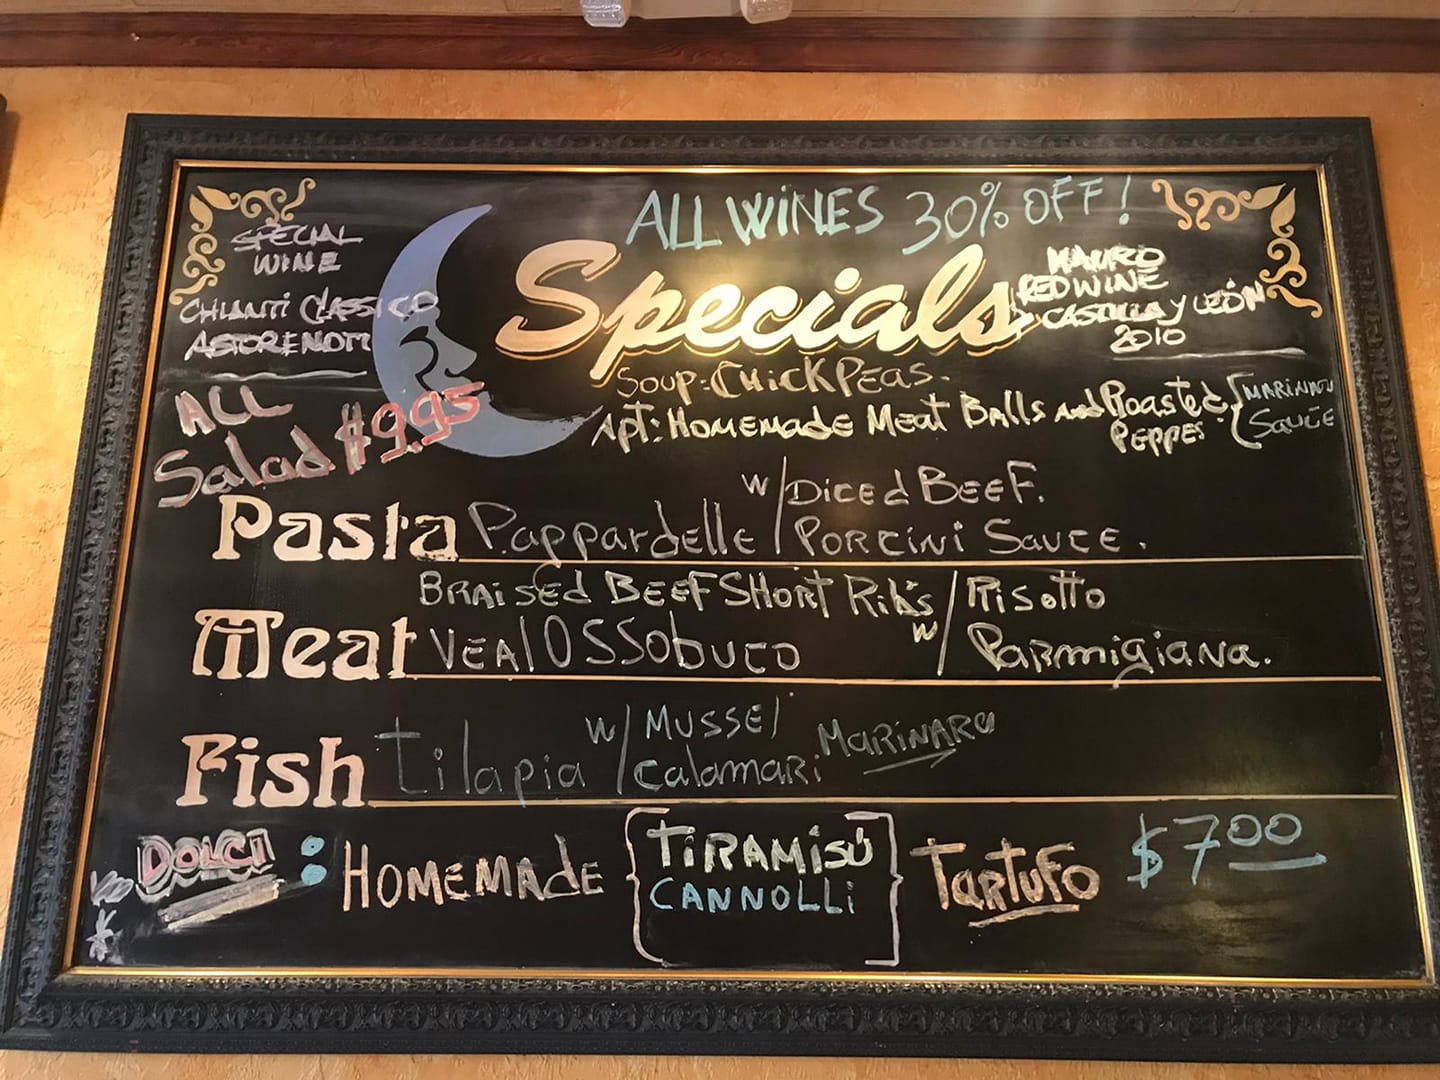 ALL WINES 30% OFF!
SPECIAL
WINE
CHIANTI CLASSICO
Specials
MAURO
RED WINE
CASTILLA Y LEÓN
2010
SOUP: CHICKPEAS.
ALL
Salad $9.95
Apt: HOMEMADE MEAT BALLS AND ROASTED
PEPPES
SAUCE
w/ DICED BEEF.
Pasta Pappardelle / PORCINI SAUCE.
BRAISED BEEF SHORT RIBS / RISOTTO
Meat VEAL OSSOBUCO w/ PARMIGIANA.
w/ MUSSEL
Fish tilapia / Calamari MARINARA
DOLCI : HOMEMADE [TIRAMISÚ
CANNOLLI] TARTUFO $7.00